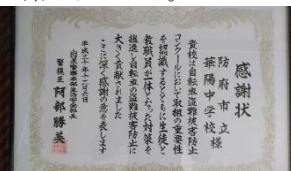 感謝状
防府市立
華陽中学校様
貴校は自転車盗難被害防止
コンクールにおいて取組の重要性
を認識するとともに生徒と
教職員が一体となった対策を
推進し自転車の盗難被害防止に
大きく貢献されました
ここに深く感謝の意を表します
平成二十年十二月六日
山口県警察本部生活安全部長
警視正 阿部勝美